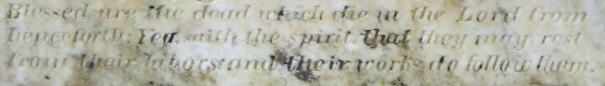 Blessed are the dead which die in the Lord from
henceforth: Yea, saith the spirit, that they may rest
from their labors: and their works do follow them.